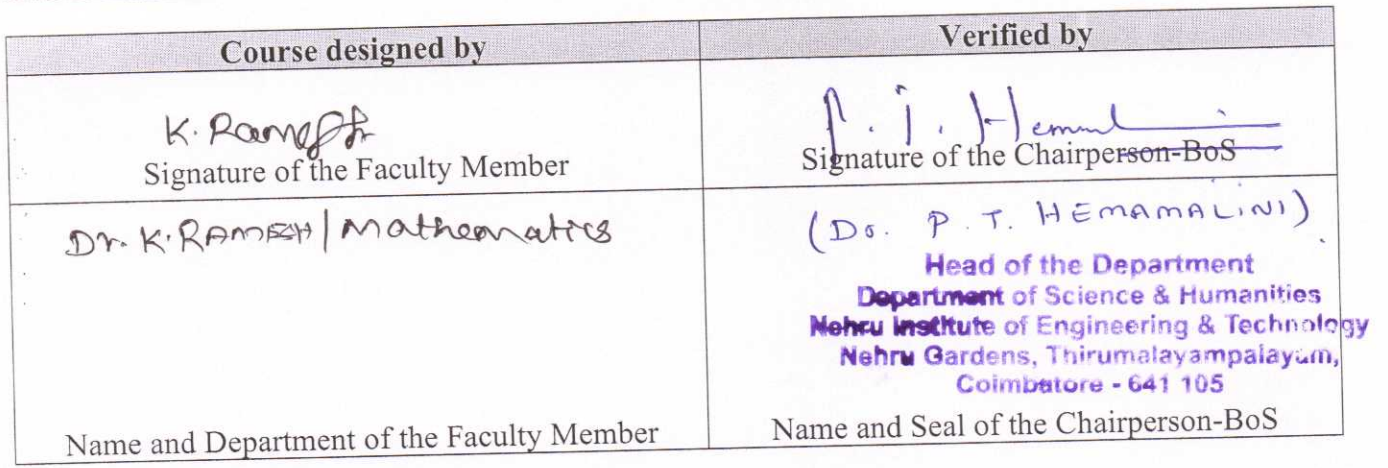 Course designed by
Verified by
K. Ramesh
Signature of the Faculty Member
P. T. Hemal
Signature of the Chairperson-BoS
Dr. K. RAMESH / Mathematics
Name and Department of the Faculty Member
(Dr. P. T. HEMAMALINI)
Head of the Department
Department of Science & Humanities
Nehru Institute of Engineering & Technology
Nehru Gardens, Thirumalayampalayam,
Coimbatore - 641 105
Name and Seal of the Chairperson-BoS